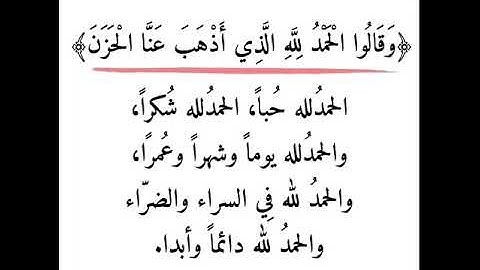 ﴿وَقَالُوا الْحَمْدُ لِلَّهِ الَّذِي أَذْهَبَ عَنَّا الْحَزَنَ﴾
الحمدُلله حُباً، الحمدُلله شُكراً،
والحمدُلله يوماً وشهراً وعُمرًا،
والحمدُ لله فِي السراء والضرّاء
والحمدُ لله دائماً وأبدا.